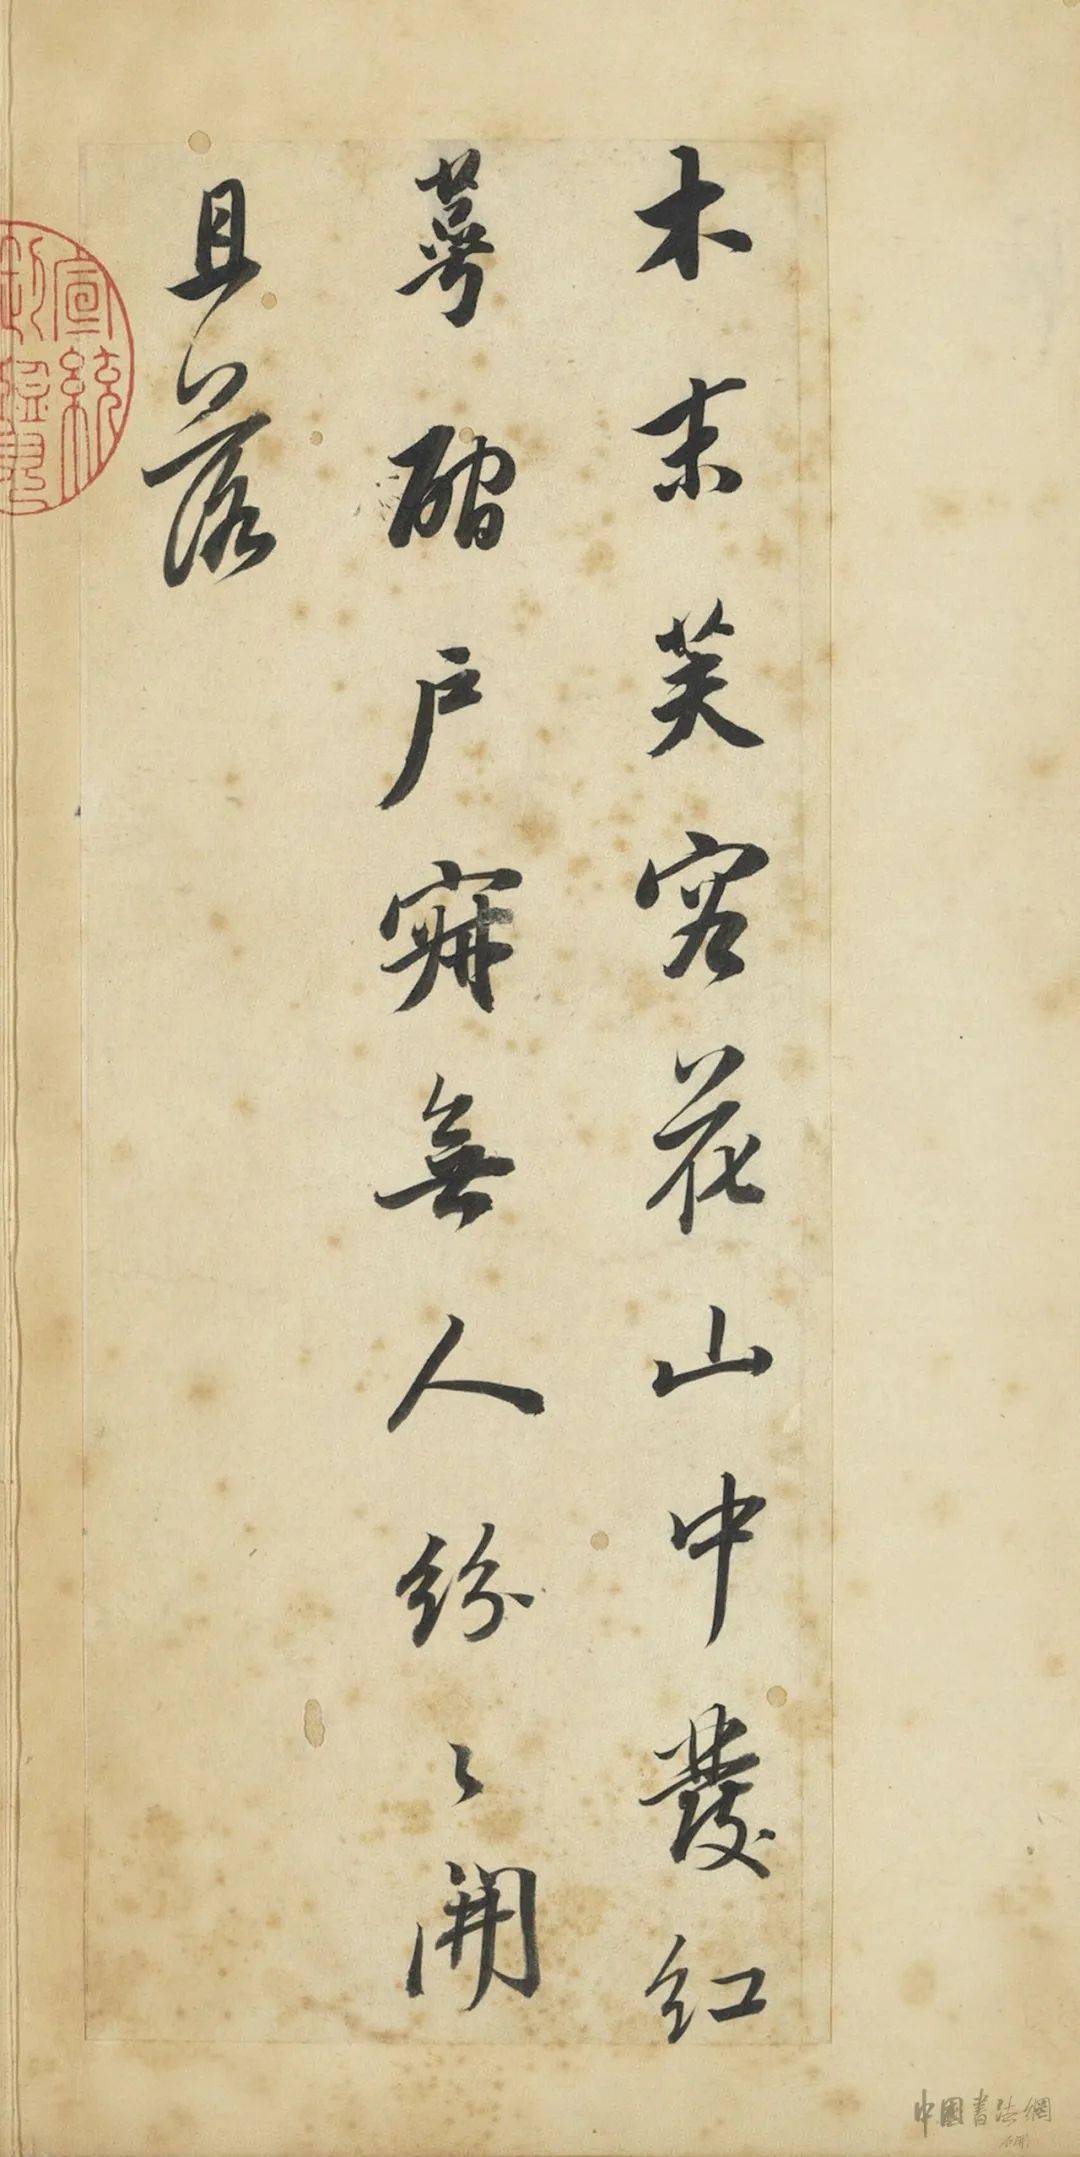 木末芙容花山中發紅
萼磵戶寂無人紛〻開
且落
宣統
中國書法網